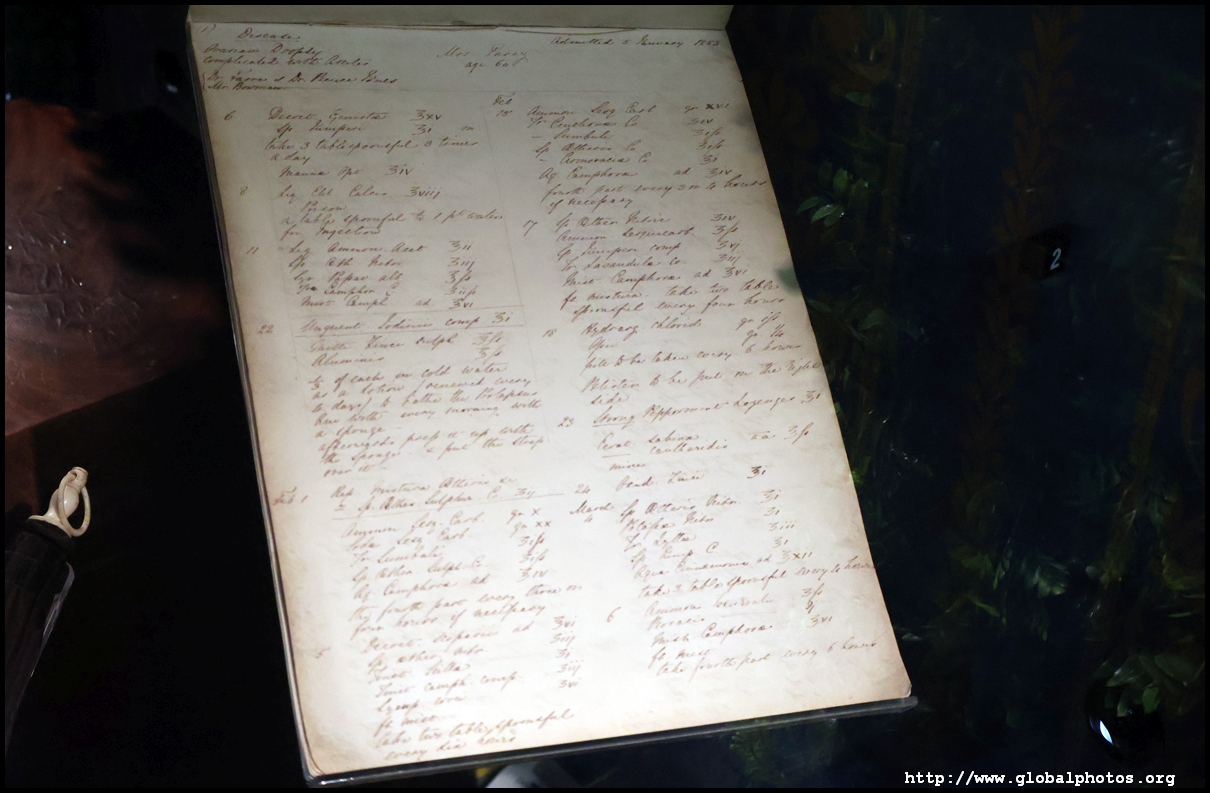 Disease
Ovarian Dropsy
complicated with Ascites
Dr. Farre & Dr.
Mr Bowman
Mrs
age 60
Admitted 5 January 1853
6 Decoct Genistæ ʒxv
Sp Juniperi ʒi m
take 3 tablespoonsful 3 times
a day
Manna Opt ʒiv
8 Liq Calcis ʒviii
Poison
a table spoonful to 1 pt water
for Injection
11 Liq Ammon Acet ʒii
Sp Æth Nitr ʒiij
Syr Papav alb ʒfs
Tra Camphor C ʒiifs
Mist Camph ad ʒvi
22 Unguent Iodinii comp ʒi
Zinci Sulph ʒfs
Aluminis ʒfs
of each in cold water
as a lotion renewed every
days to bathe the Prolapsus
with every morning with
a sponge
afterwards keep it up with
the sponge & put the strap
over it
Feb 1 Rep mistura Ætheris
Sp Æther Sulphur C ʒij
Ammon Sesq Carb. gr x
Soda Sesq Carb. gr xx
Tr Sumbuli ʒifs
Sp Æther Sulph C ʒifs
Aq Camphora ad ʒiv
the fourth part every three or
four hours if necessary
5 Decoct Scoparii ad ʒvi
Sp æther nitr ʒiij
Tinct Scilla ʒi
Tinct Camph comp ʒiij
ʒvi
ft mist
take two tablespoonsful
every six hours
Feb
15 Ammon Sesq Carb gr xvi
Tr Cinchona Co ʒiv
— Sumbuli ʒifs
Sp Ætheris Co ʒifs
- Armoracia C ʒi
Aq Camphora ad ʒiv
fourth part every 3 or 4 hours
if necessary
17 Sp Æther Nitric ʒiv
Ammon Sesquicarb ʒfs
Sp Juniper comp ʒvj
Tr Lavandula Co ʒiij
Mist Camphora ad ʒvi
ft mistura take two table
spoonsful every four hours
18 Hydrarg Chlorid gr ifs
Opii gr
pill to be taken every 6 hours
Blister to be put on the right
side
23 Strong Peppermint Lozenges ʒi
Cerat Sabina
— cantharidis aa ʒfs
misce
24 ʒi
March
4 Sp Ætheris Nitr ʒi
Potassæ Nitr ʒi
Tr Lytta ʒiii
Sp Junip C ʒi
Aqua Cinnamomi ad ʒxii
take 3 table spoonsful every 4 hours
6 Ammon ʒfs
Mist Camphora ʒvi
ft mist
take fourth part every 6 hours
2
http://www.globalphotos.org